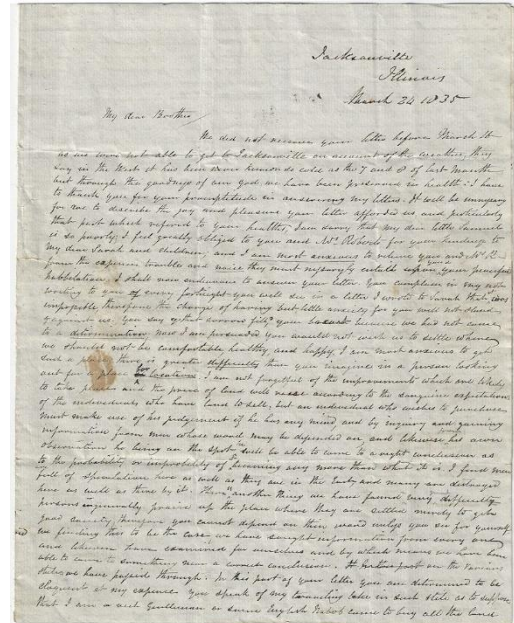 Jacksonville
Illinois
March 24 1835
My dear Brother
We did not receive your letter before March 16
as we were not able to get to Jacksonville on account of the weather, they
say in the West it has been more cold as the 7 and 8 of last Month
but through the goodness of our god we have been preserved in health. I have
to thank you for your promptitude in answering my letters. It will be
for me to describe the joy and pleasure your letter afforded us and
that part which refered to your healths, I am sorry that my dear little Samuel
is so poorly. I feel greatly obliged to you and Mrs Roberts for your kindness to
my dear Sarah and children, and I am most anxious to releive you and Mrs R
from the expense trouble and noise they must upon your peaceful
habbitation. I shall now endeavour to answer your letter. You complain in my not
writing to you every fortnight you will see in a letter I wrote to Sarah that was
impossible therefore the charge of having but little anxiety for you will not stand
against us. You say great sorrow your because we had not come
to a determination now I am persuaded you would not wish us to settle where
we should not be comfortable healthy and happy. I am most anxious to get
such a there is greater difficulty than you imagine in a person looking
out for a place for location. I am not forgetful of the improvements which are likely
to take place and the price of land will according to the sanguine expectations
of the individuals who have land to sell, but an individual who wishes to purchase
must make use of his judgement if he has any mind and by inquiry and gaining
information from men whose word may be depended on, and likewise his own
observation he being on the spot will be able to come to a right conclusion as
to the probability or improbility of becoming any more than what it is. I find men
full of speculation here as well as they are in the East and many are
here as well as there by it. There another thing we have found very difficulty
persons praise up the place where they are settled merely to get
good society therefore you cannot depend on their word unless you see for yourself
we finding this to be the case we have sought information from many
and likewise have examined for ourselves and by which means we have been
able to come to something near a correct conclusion. the various
states we have passed through. In this part of your letter you are determined to be
eloquent at my expence you speak of my traveling like in such stile as to suppose
that I am a rich Gentleman or some English Nabob come to buy all the land